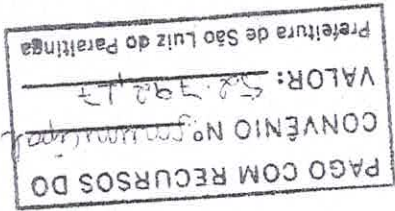 PAGO COM RECURSOS DO
CONVÊNIO Nº
VALOR: 52.792,17
Prefeitura de São Luiz do Paraitinga